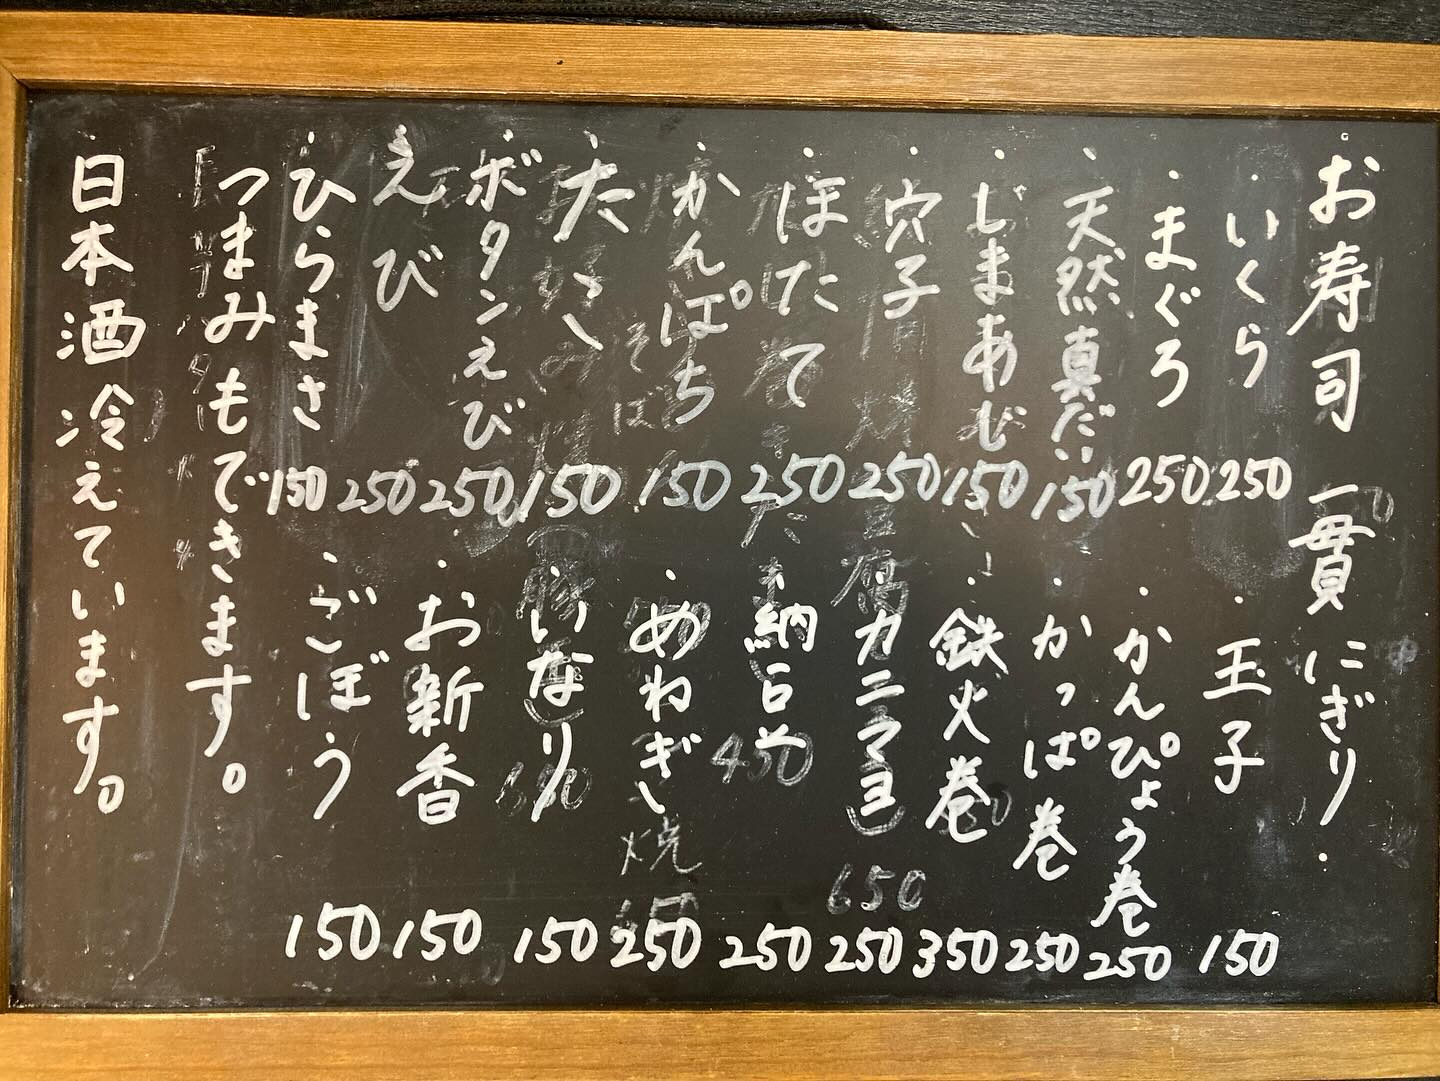 ・お寿司 一貫にぎり・
・いくら 250
・まぐろ 250
・天然真だい 150
・しまあじ 150
・穴子 250
・ほたて 250
・かんぱち 150
・たこ 150
・ボタンえび 250
・えび 250
・ひらまさ 150
・玉子 150
・かんぴょう巻 250
・かっぱ巻 250
・鉄火巻 350
・カニマヨ 250
・納豆 250
・めねぎ 250
・いなり 150
・お新香 150
・ごぼう 150
つまみもできます。
・日本酒冷えています。